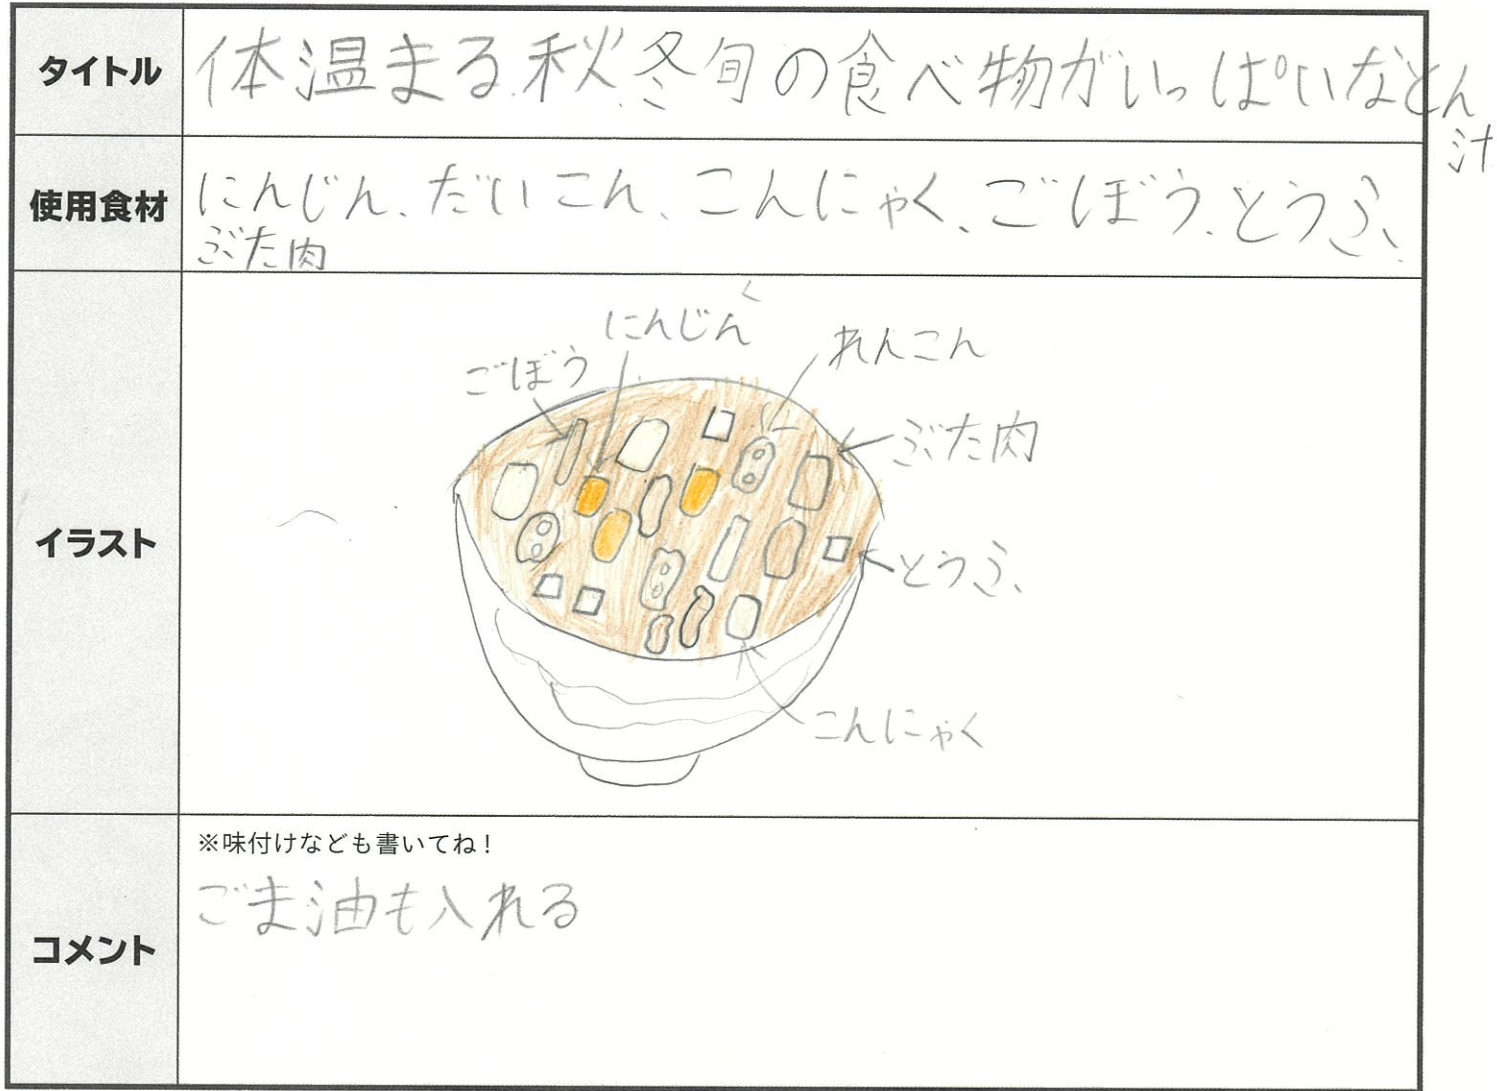 タイトル
体温まる秋冬旬の食べ物がいっぱいなとん
汁
使用食材
にんじん、だいこん、こんにゃく、ごぼう、とうふ、
ぶた肉
イラスト
く
にんじん
れんこん
ごぼう
ぶた肉
とうふ
こんにゃく
コメント
※味付けなども書いてね！
ごま油も入れる